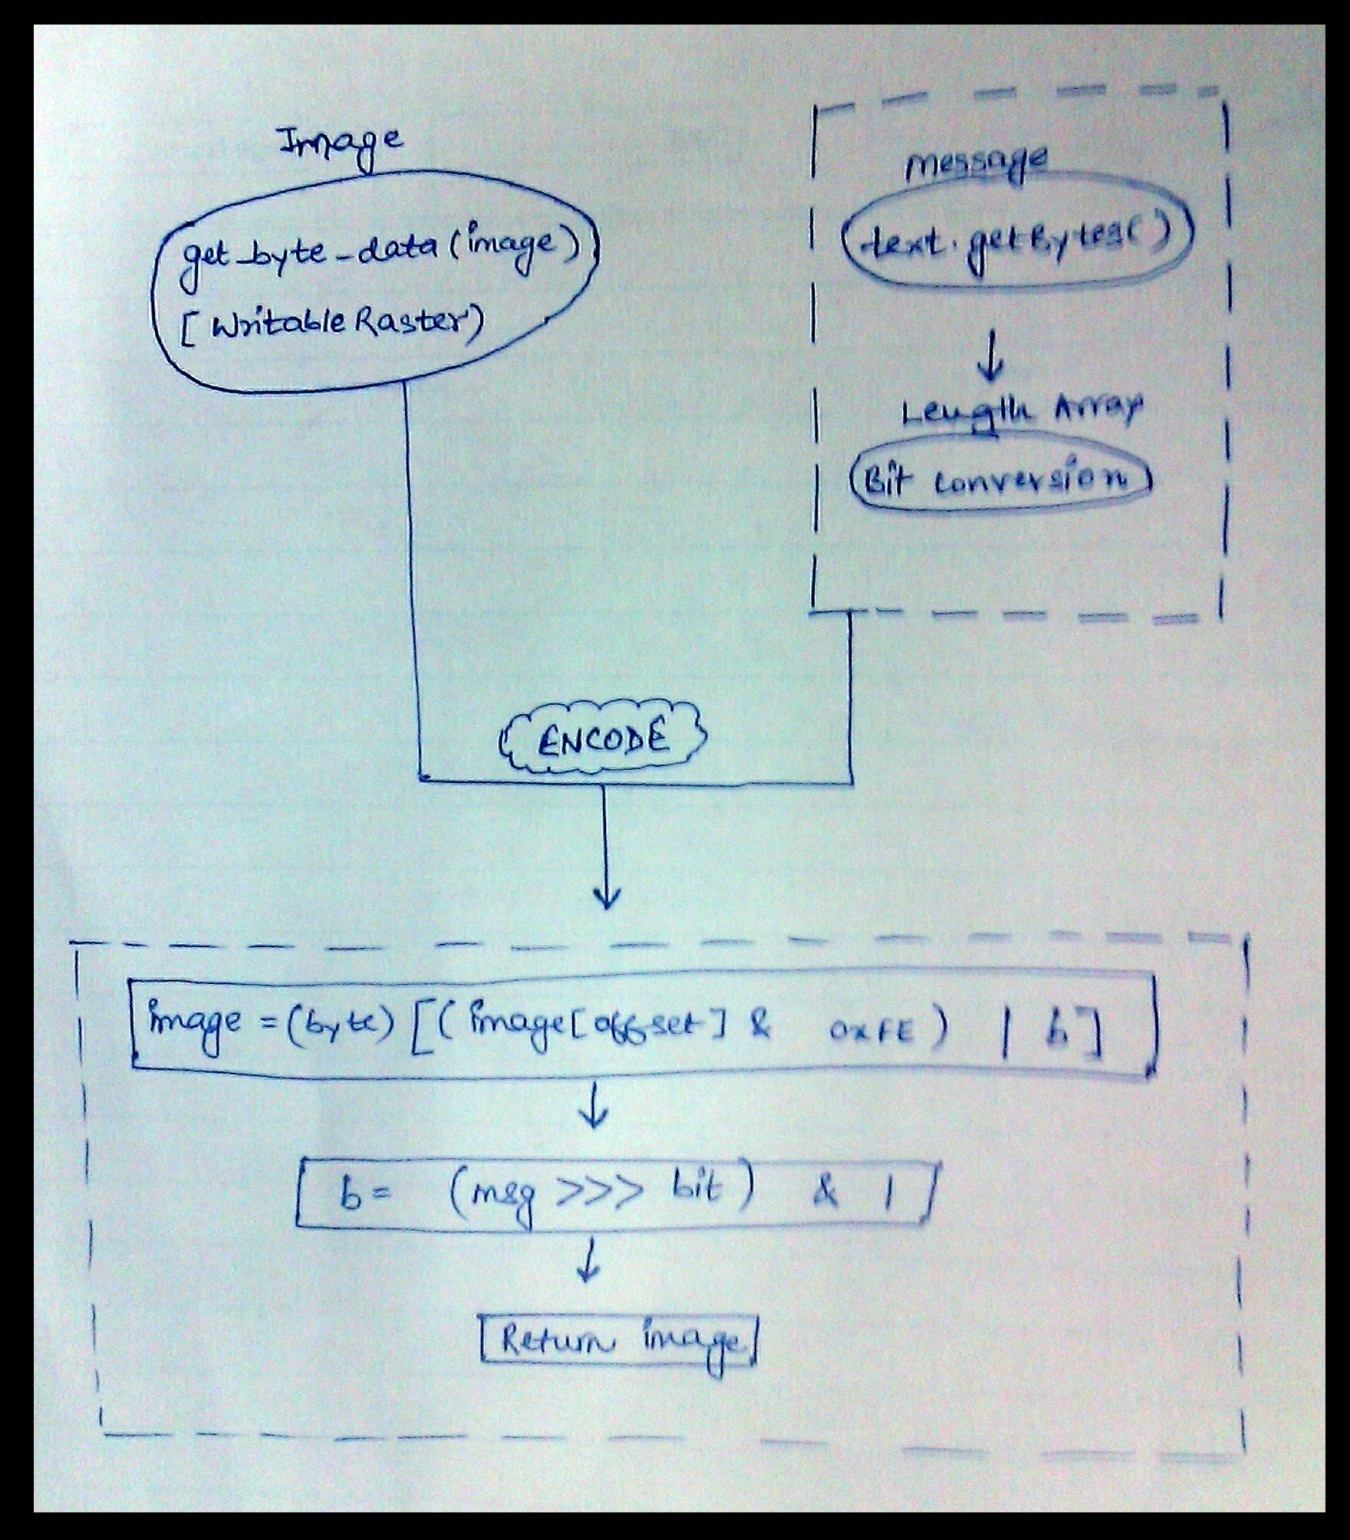 Image
get_byte_data(image)
[WritableRaster)
message
text.getBytes()
Length Array
Bit conversion
ENCODE
image = (byte) [(image[offset] & 0xFE) | b]
b = (msg >>> bit) & 1
Return image